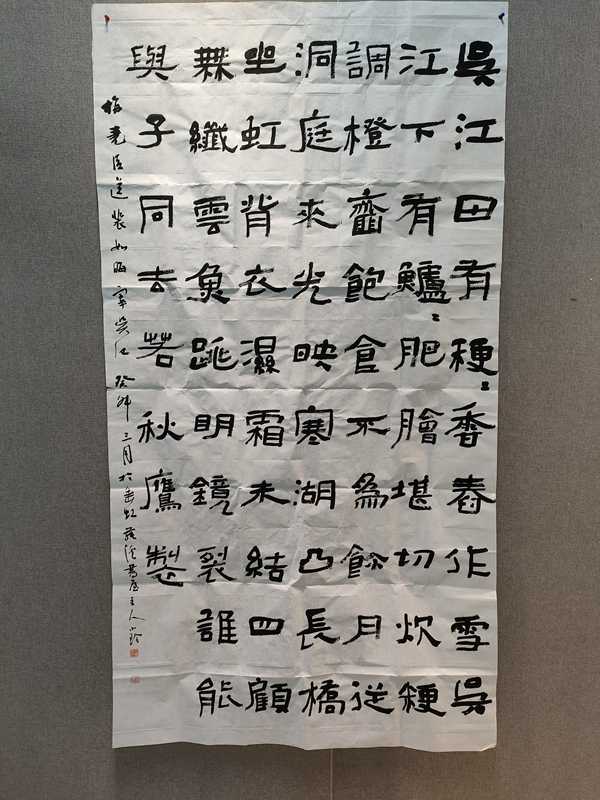 吳江田有稉〻香舂作雪吳
江下有鱸〻肥膾堪切炊稉
調橙齏飽食不為餘月從
洞庭來光映寒湖凸長橋
坐虹背衣濕霜未結四顧
無纖雲魚跳明鏡裂誰能
與子同去若秋鷹製
梅堯臣送裴如晦宰吳江 癸卯三月於垂虹主人